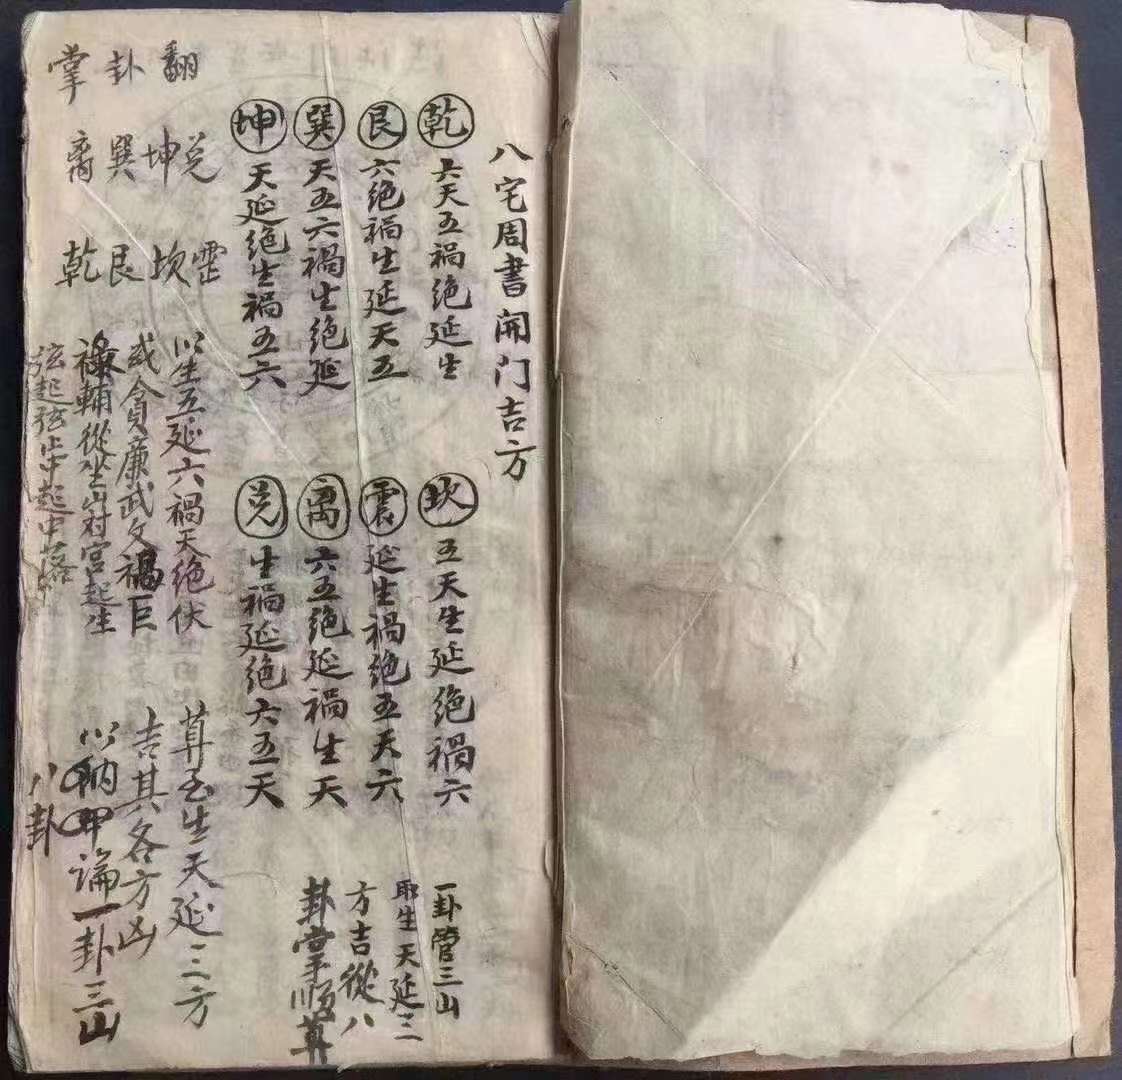 八宅周書開门吉方
乾 六天五禍绝延生
艮 六绝禍生延天五
巽 天五六禍生绝延
坤 天延绝生禍五六
坎 五天生延绝禍六
震 延生禍绝五天六
离 六五绝延禍生天
兑 生禍延绝六五天
一卦管三山
取生天延三
方吉從八
卦掌順算
翻卦掌
兑坤巽离
震坎艮乾
以生五延六禍天绝伏
或貪廉武文禄巨
輔從坐山对宫起生
弦起弦止中起中落
算至生天延三方
吉其各方凶
以納甲論一卦三山
八卦